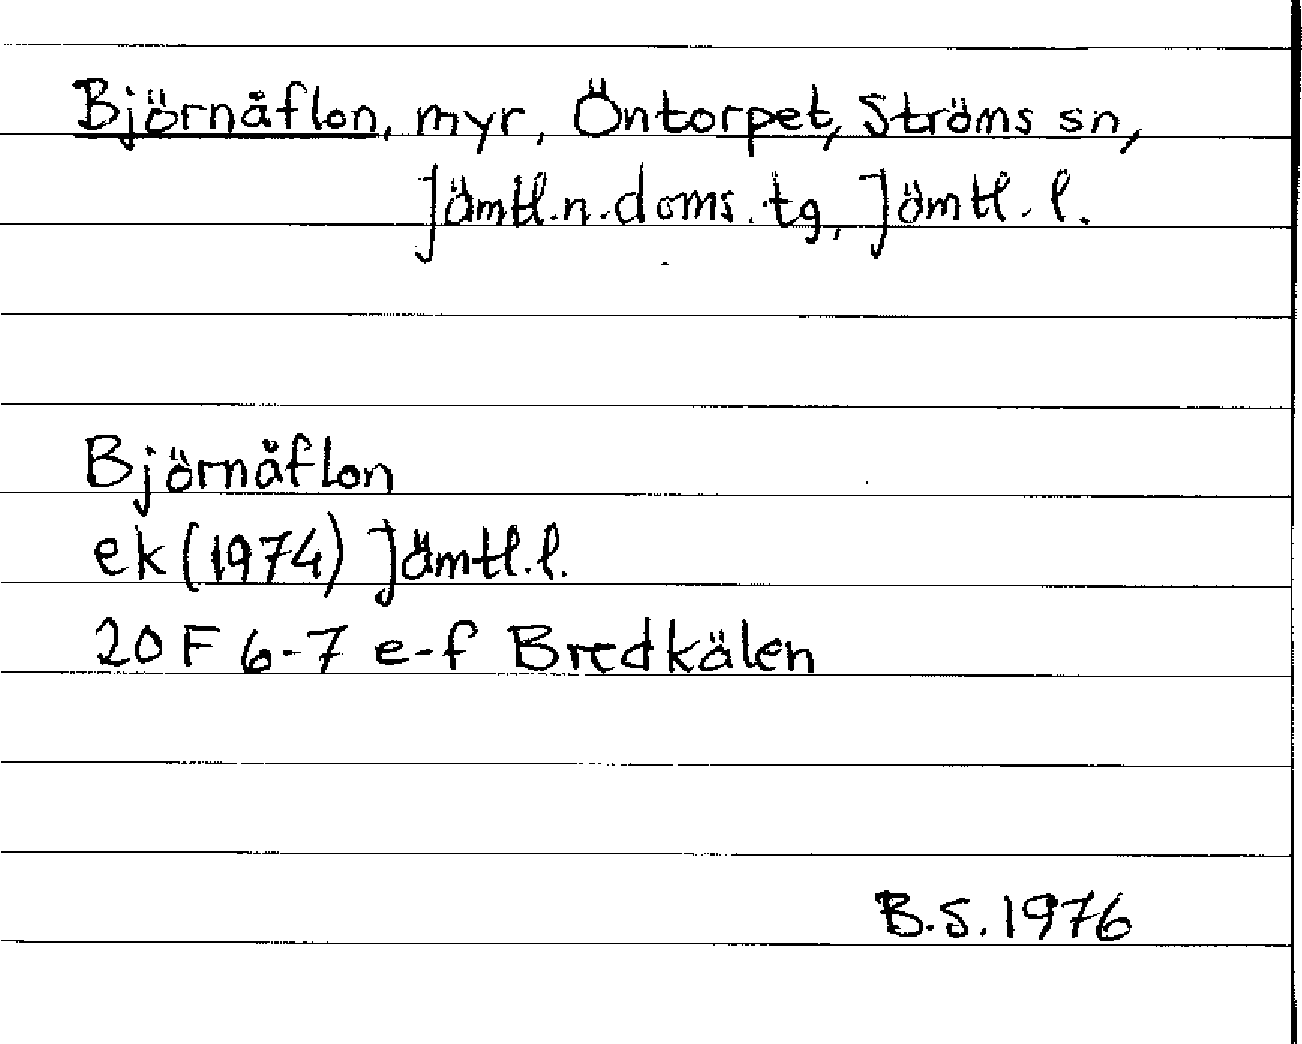 Björnåflon, myr, Öntorpet, Ströms sn,
Jämtl.n.doms.tg, Jämtl.l.
Björnåflon
ek (1974) Jämtl.l.
20 F 6-7 e-f Bredkälen
B.S. 1976